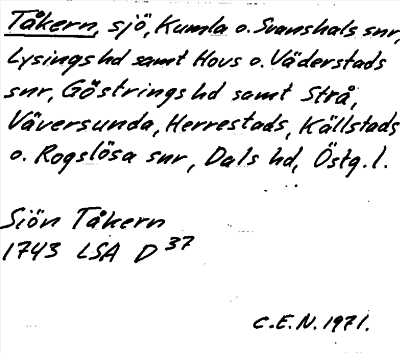 Tåkern, sjö, Kumla o. Svanshals snr,
Lysings hd samt Hovs o. Väderstads
snr, Göstrings hd samt Strå,
Väversunda, Herrestads, Källstads
o. Rogslösa snr, Dals hd, Östg. l.
Siön Tåkern
1743 LSA D 37
C.E.N. 1971.